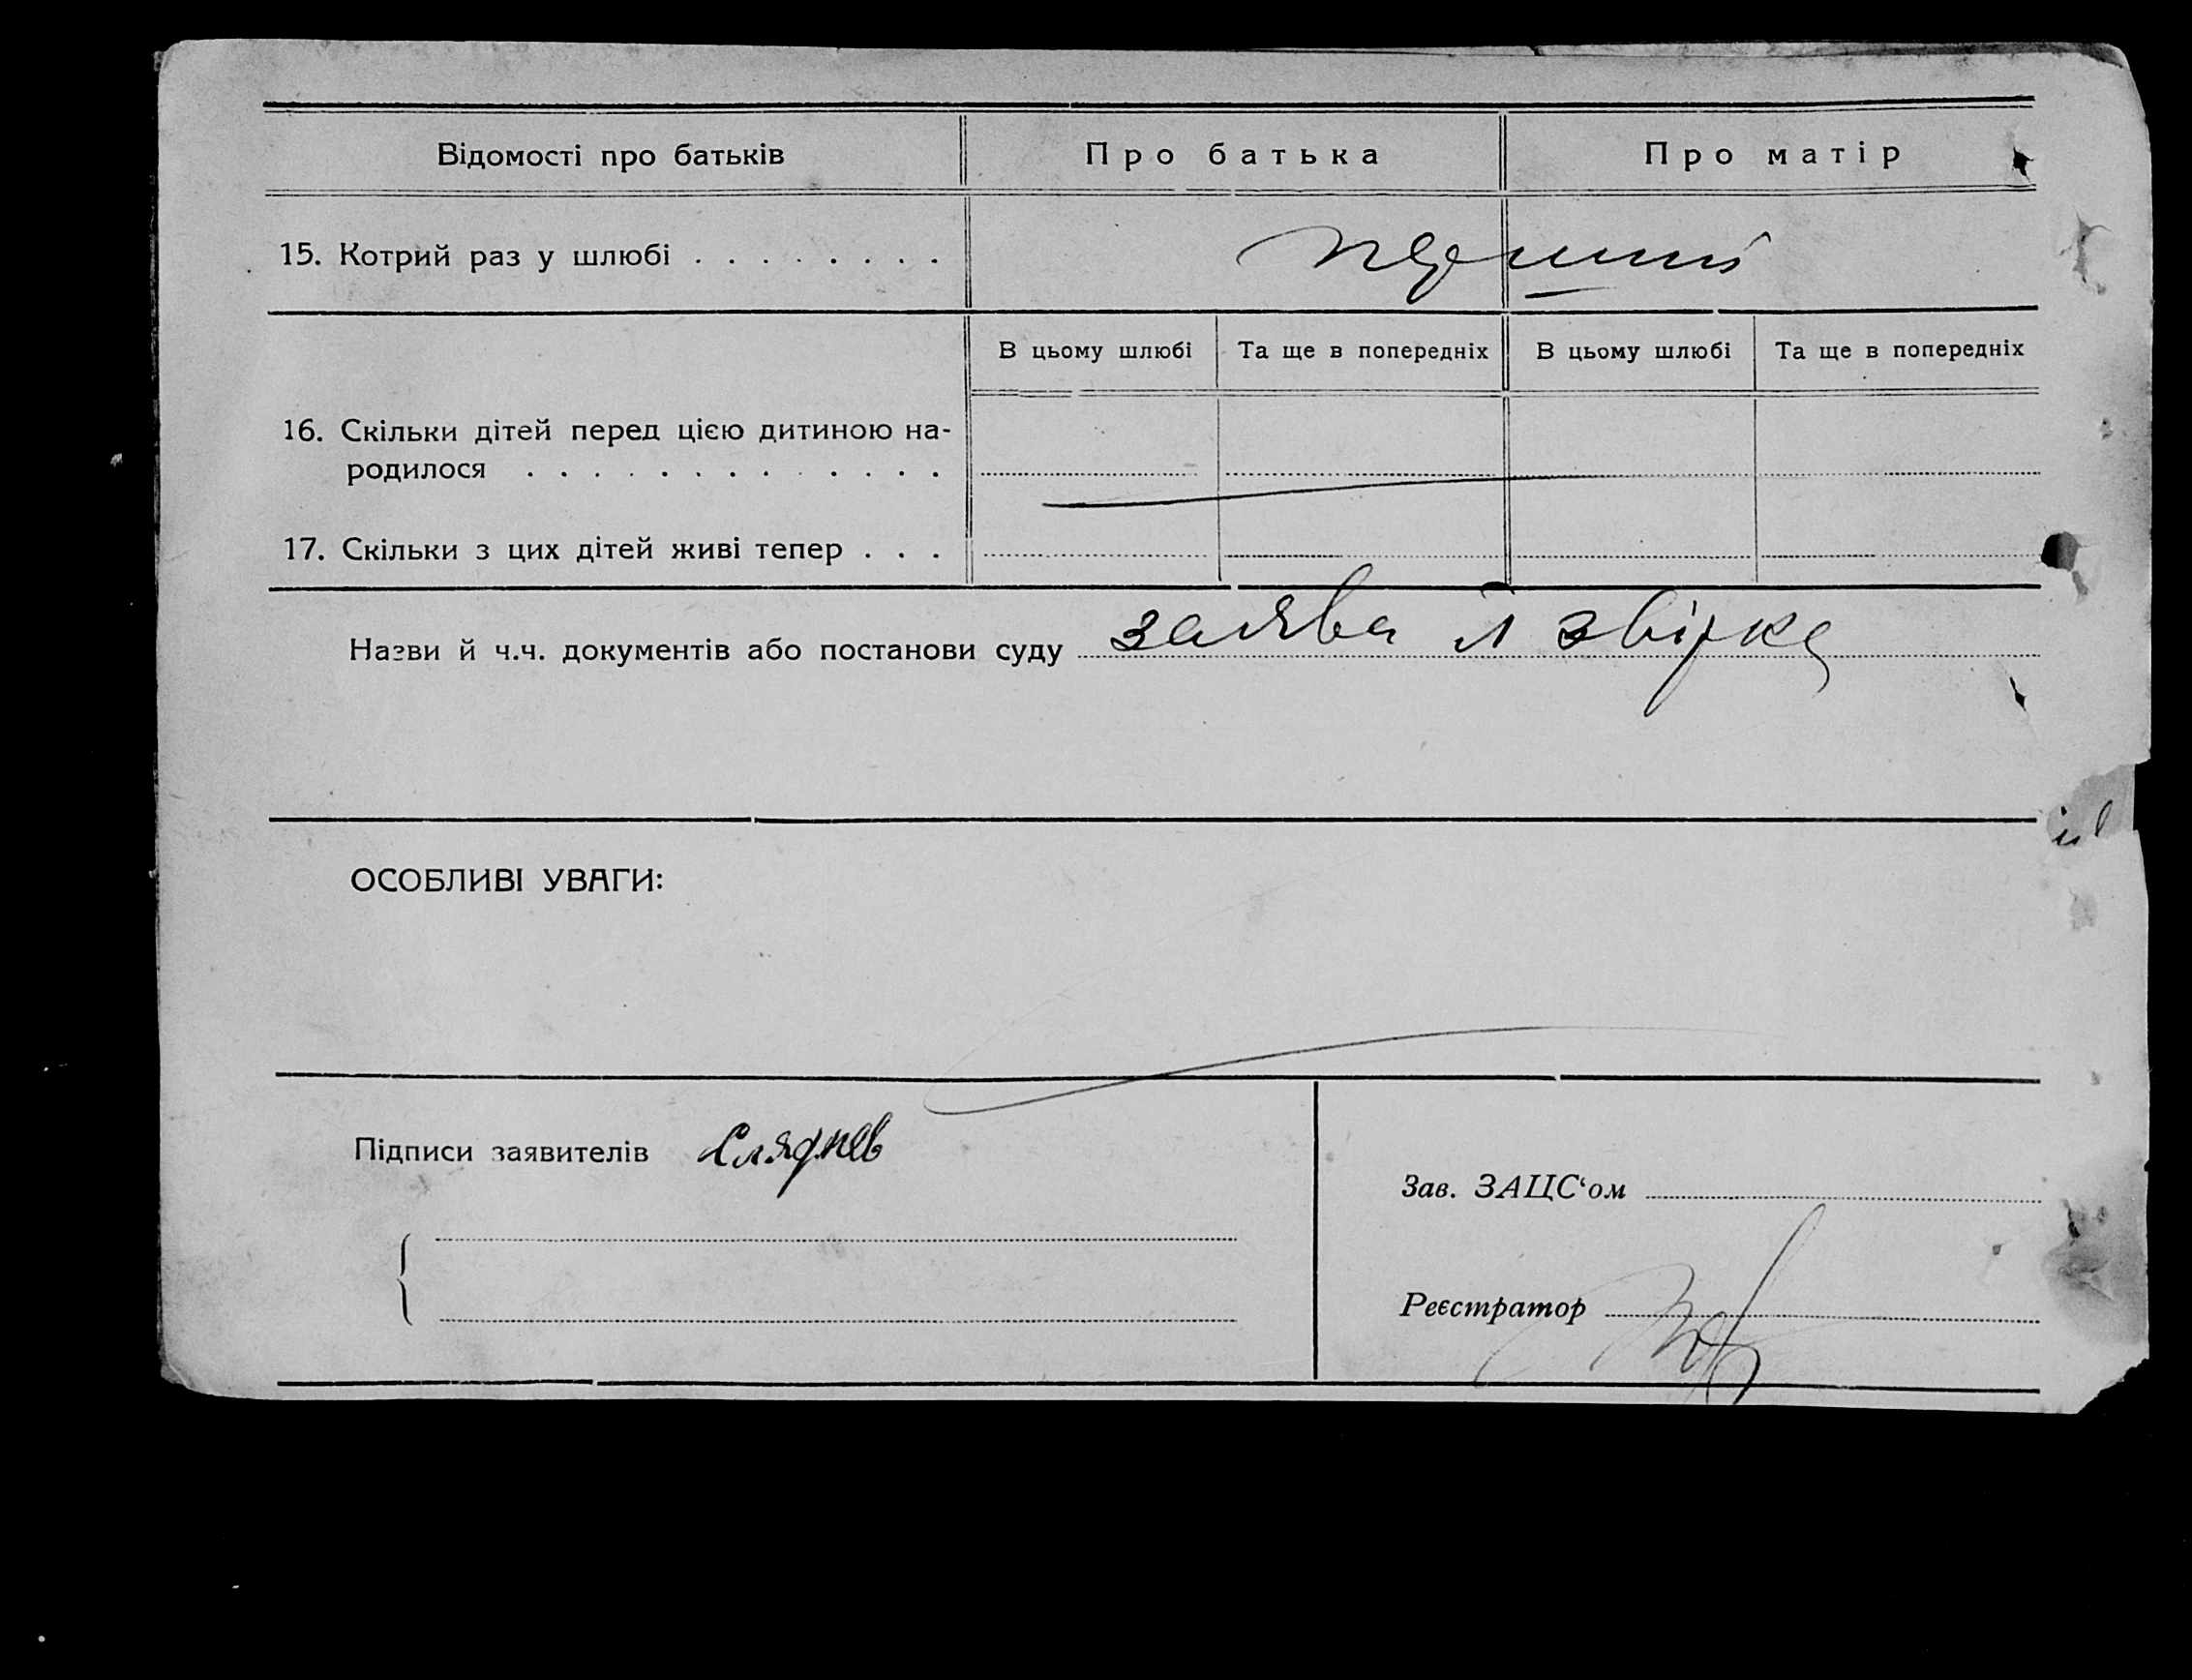 Відомості про батьків Про батька Про матір
15. Котрий раз у шлюбі . . . . . . . . перший
В цьому шлюбі Та ще в попередніх В цьому шлюбі Та ще в попередніх
16. Скільки дітей перед цією дитиною на-
родилося . . . . . . . . . . . . .
17. Скільки з цих дітей живі тепер . . .
Назви й ч.ч. документів або постанови суду заява й звірка
ОСОБЛИВІ УВАГИ:
Підписи заявителів Сляднев
Зав. ЗАЦС‘ом
Реєстратор